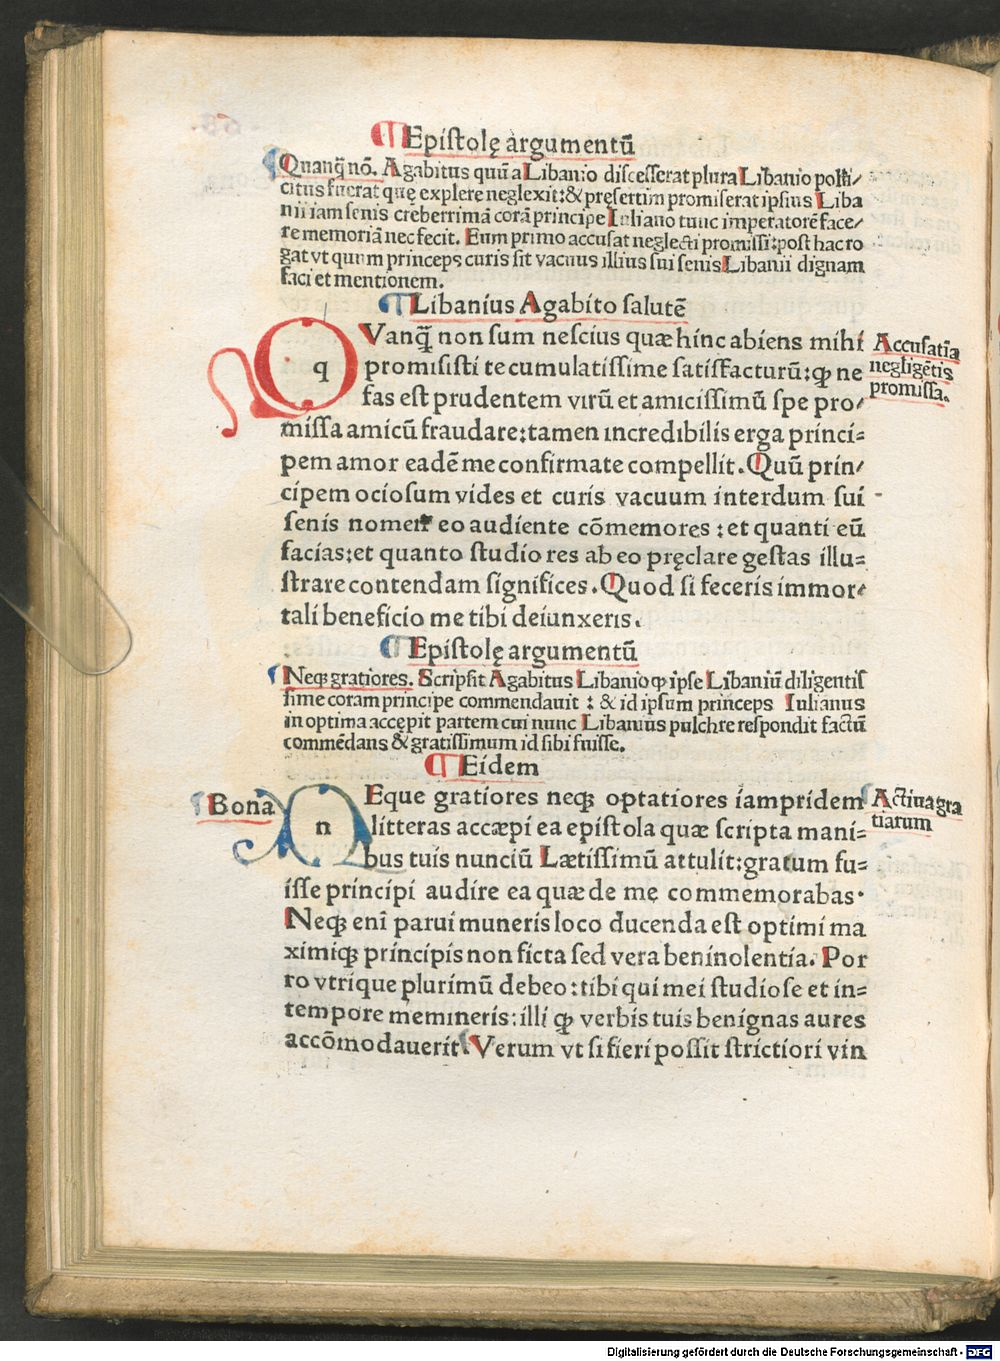 ¶Epistolę argumentū
Quanq̄ nō. Agabitus quū a Libanio discesserat plura Libanio polli/
citus fuerat quę explere neglexit: & presertim promiserat ipsius Liba
nii iam senis creberrimā corā principe Iuliano tunc imperatorē face/
re memoriā nec fecit. Eum primo accusat neglecti promissi: post hac ro
gat vt quum princeps curis sit vacuus illius sui senis Libanii dignam
faci et mentionem.
¶Libanius Agabito salutē
qVanq̄ non sum nescius quæ hinc abiens mihi
promisisti te cumulatissime satisfacturū: ꝙ ne
fas est prudentem virū et amicissimū spe pro/
missa amicū fraudare: tamen incredibilis erga princi=
pem amor eadē me confirmate compellit. Quū prin/
cipem ociosum vides et curis vacuum interdum sui
senis nomen eo audiente cōmemores : et quanti eū
facias: et quanto studio res ab eo pręclare gestas illu=
strare contendam significes. Quod si feceris immor/
tali beneficio me tibi deiunxeris.
Accusatīa
negligētis
promissa.
¶Epistolę argumentū
Neqꝫ gratiores. Scripsit Agabitus Libanio ꝙ ipse Libaniū diligentis
sime coram principe commendauit : & id ipsum princeps Iulianus
in optima accępit partem cui nunc Libanius pulchre respondit factū
commēdans & gratissimum id sibi fuisse.
¶Eidem
Bona
nEque gratiores neqꝫ optatiores iampridem
litteras accæpi ea epistola quæ scripta mani=
bus tuis nunciū Lætissimū attulit: gratum fu=
isse principi audire ea quæ de me commemorabas.
Neqꝫ eni parui muneris loco ducenda est optimi ma
ximiqꝫ principis non ficta sed vera beniuolentia. Por
ro vtrique plurimū debeo: tibi qui mei studiose et in=
tempore memineris: illi ꝙ verbis tuis benignas aures
accōmodauerit. Verum vt si fieri possit strictiori vin
Actiua gra
tiarum
Digitalisierung gefördert durch die Deutsche Forschungsgemeinschaft - DFG